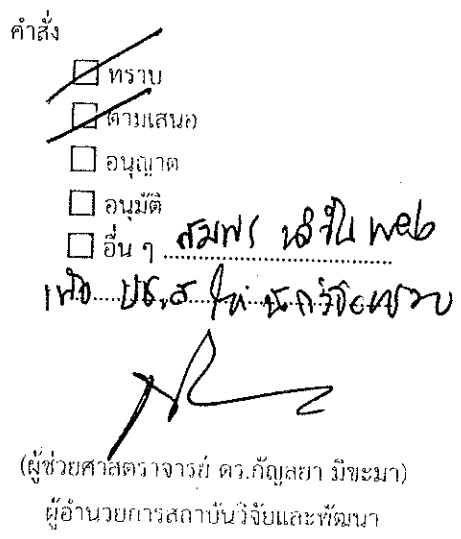 คำสั่ง
ทราบ
ตามเสนอ
อนุญาต
อนุมัติ
อื่น ๆ สมพร web
เพื่อ ปช.ส ให้ นักวิจัยทราบ
(ผู้ช่วยศาสตราจารย์ ดร.กัญลยา มิขะมา)
ผู้อำนวยการสถาบันวิจัยและพัฒนา